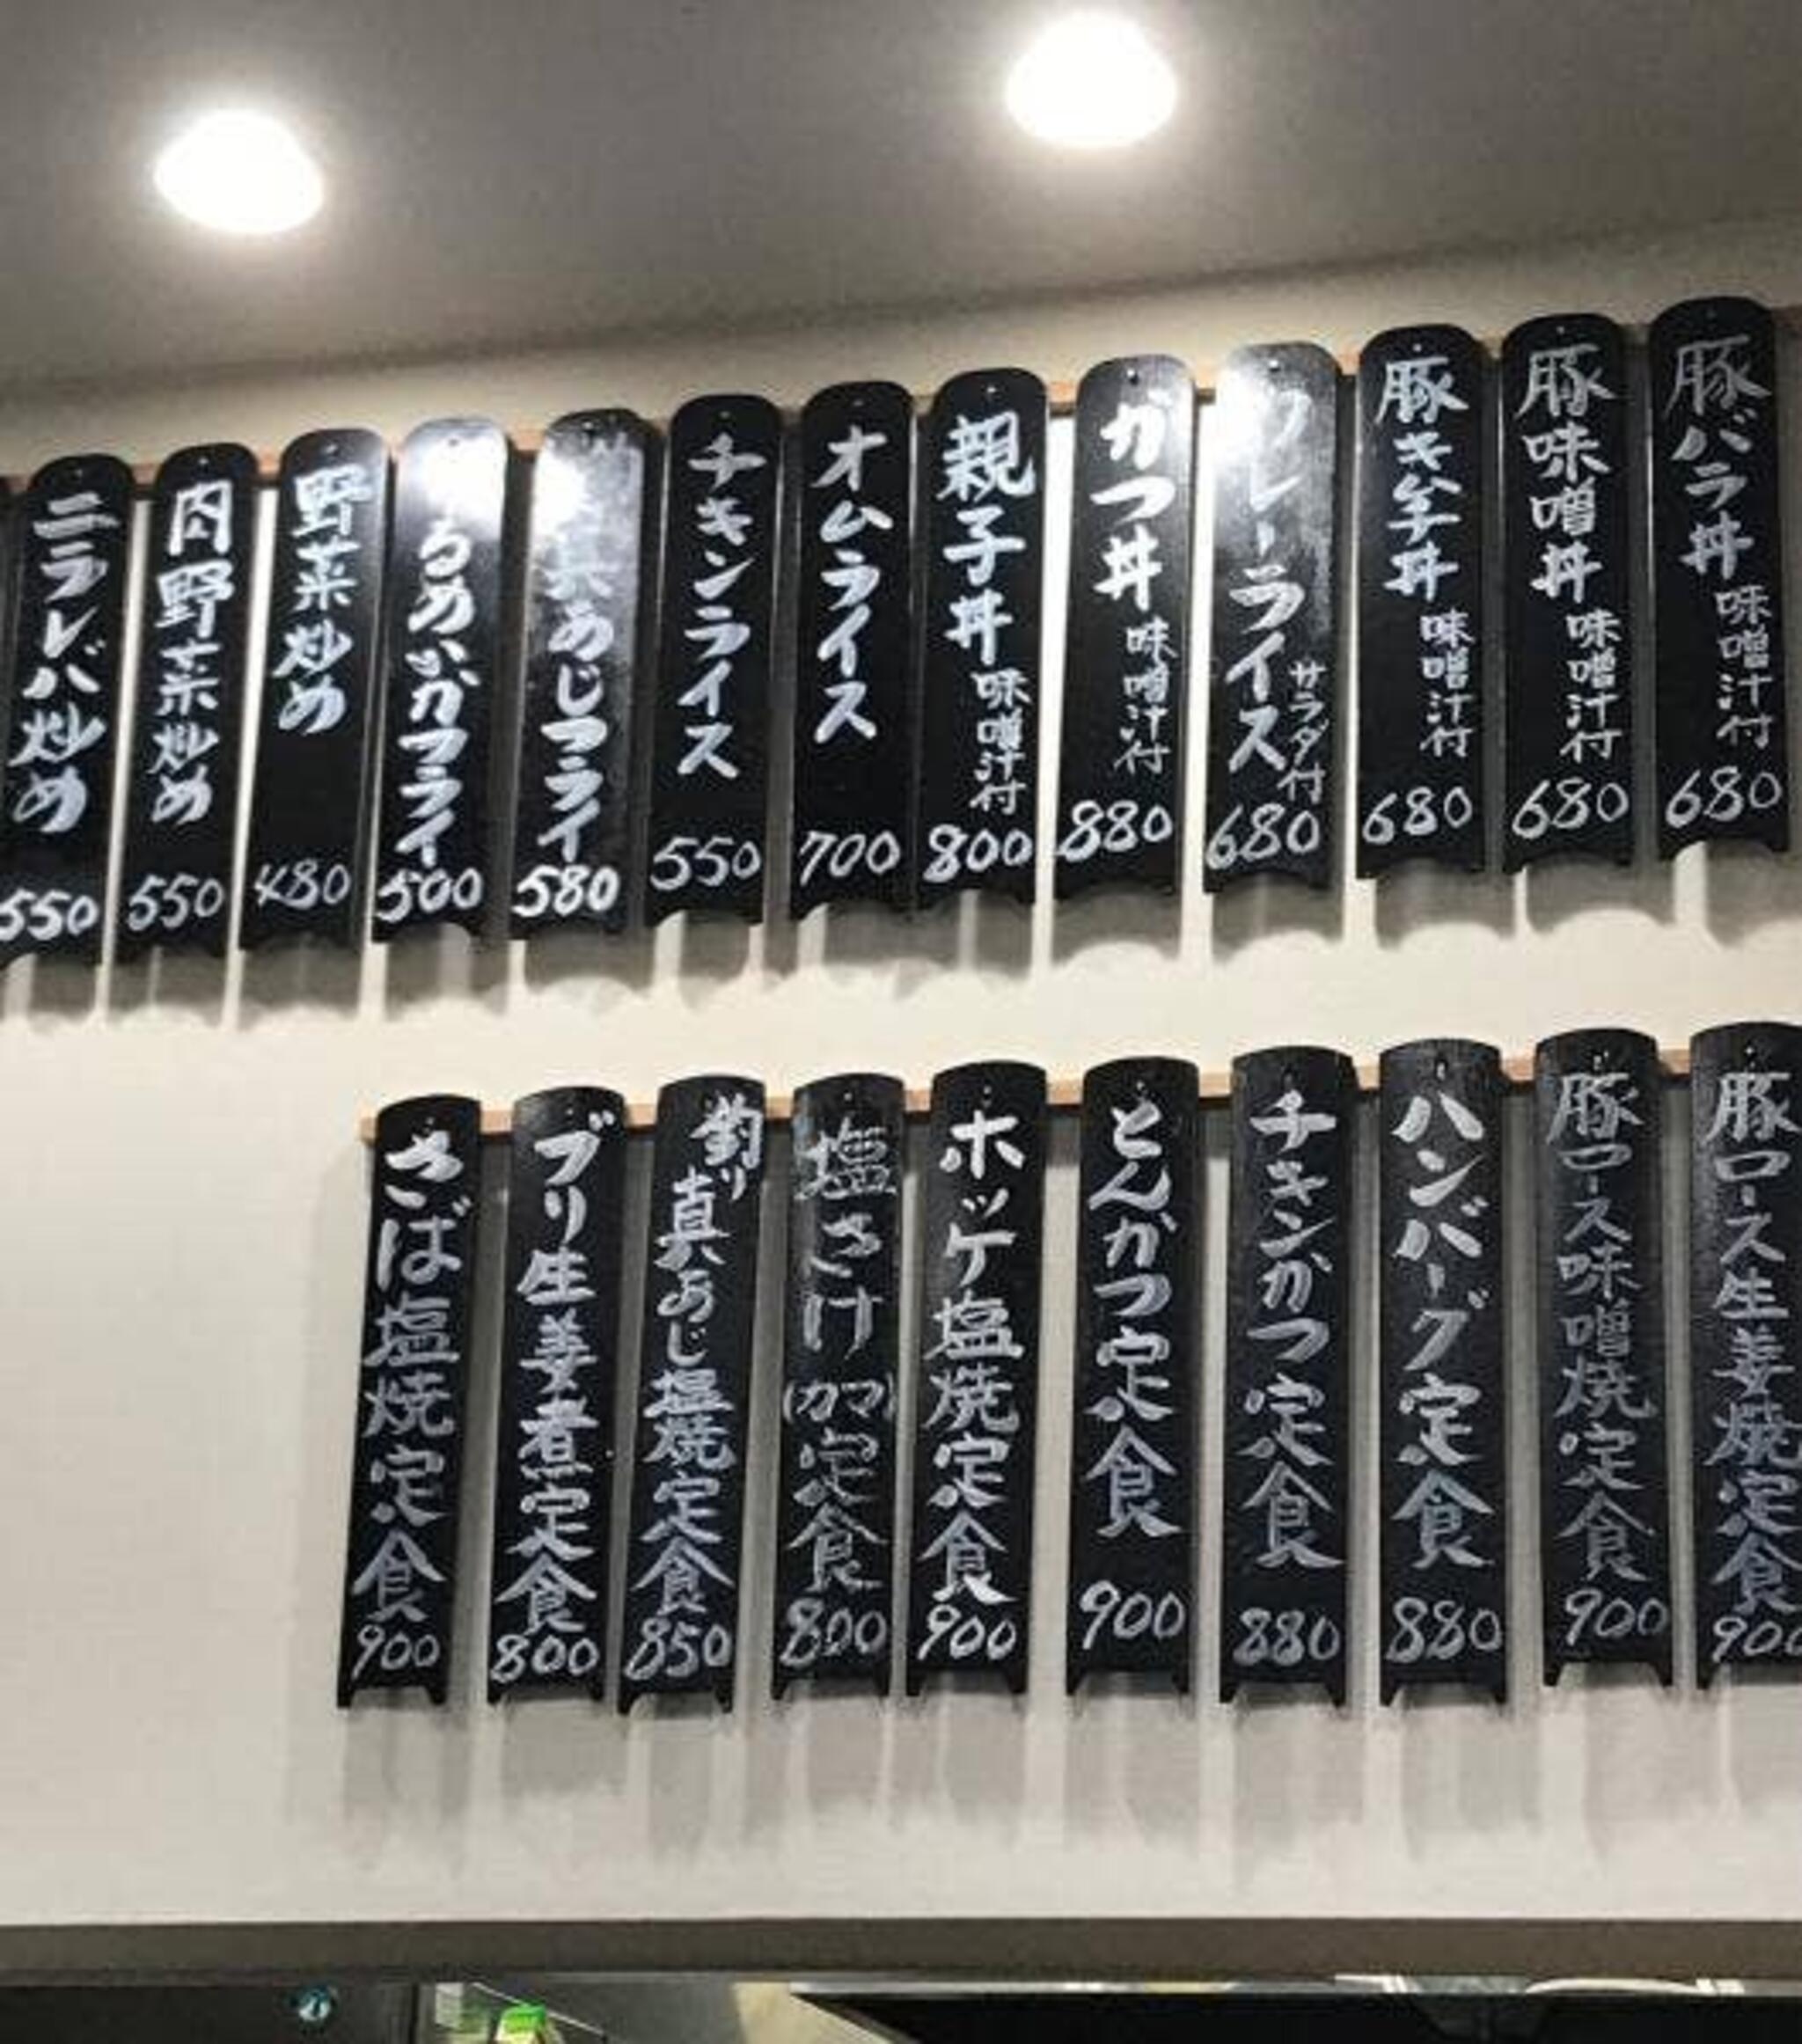 豚バラ丼 味噌汁付 680
豚味噌丼 味噌汁付 680
豚キムチ丼 味噌汁付 680
カレーライス サラダ付 680
かつ丼 味噌汁付 880
親子丼 味噌汁付 800
オムライス 700
チキンライス 550
真あじフライ 580
するめいかフライ 500
野菜炒め 480
肉野菜炒め 550
ニラレバ炒め 550
豚ロース生姜焼定食 900
豚ロース味噌焼定食 900
ハンバーグ定食 880
チキンかつ定食 880
とんかつ定食 900
ホッケ塩焼定食 900
塩さけ(カマ)定食 800
釣り真あじ塩焼定食 850
ブリ生姜煮定食 800
さば塩焼定食 900